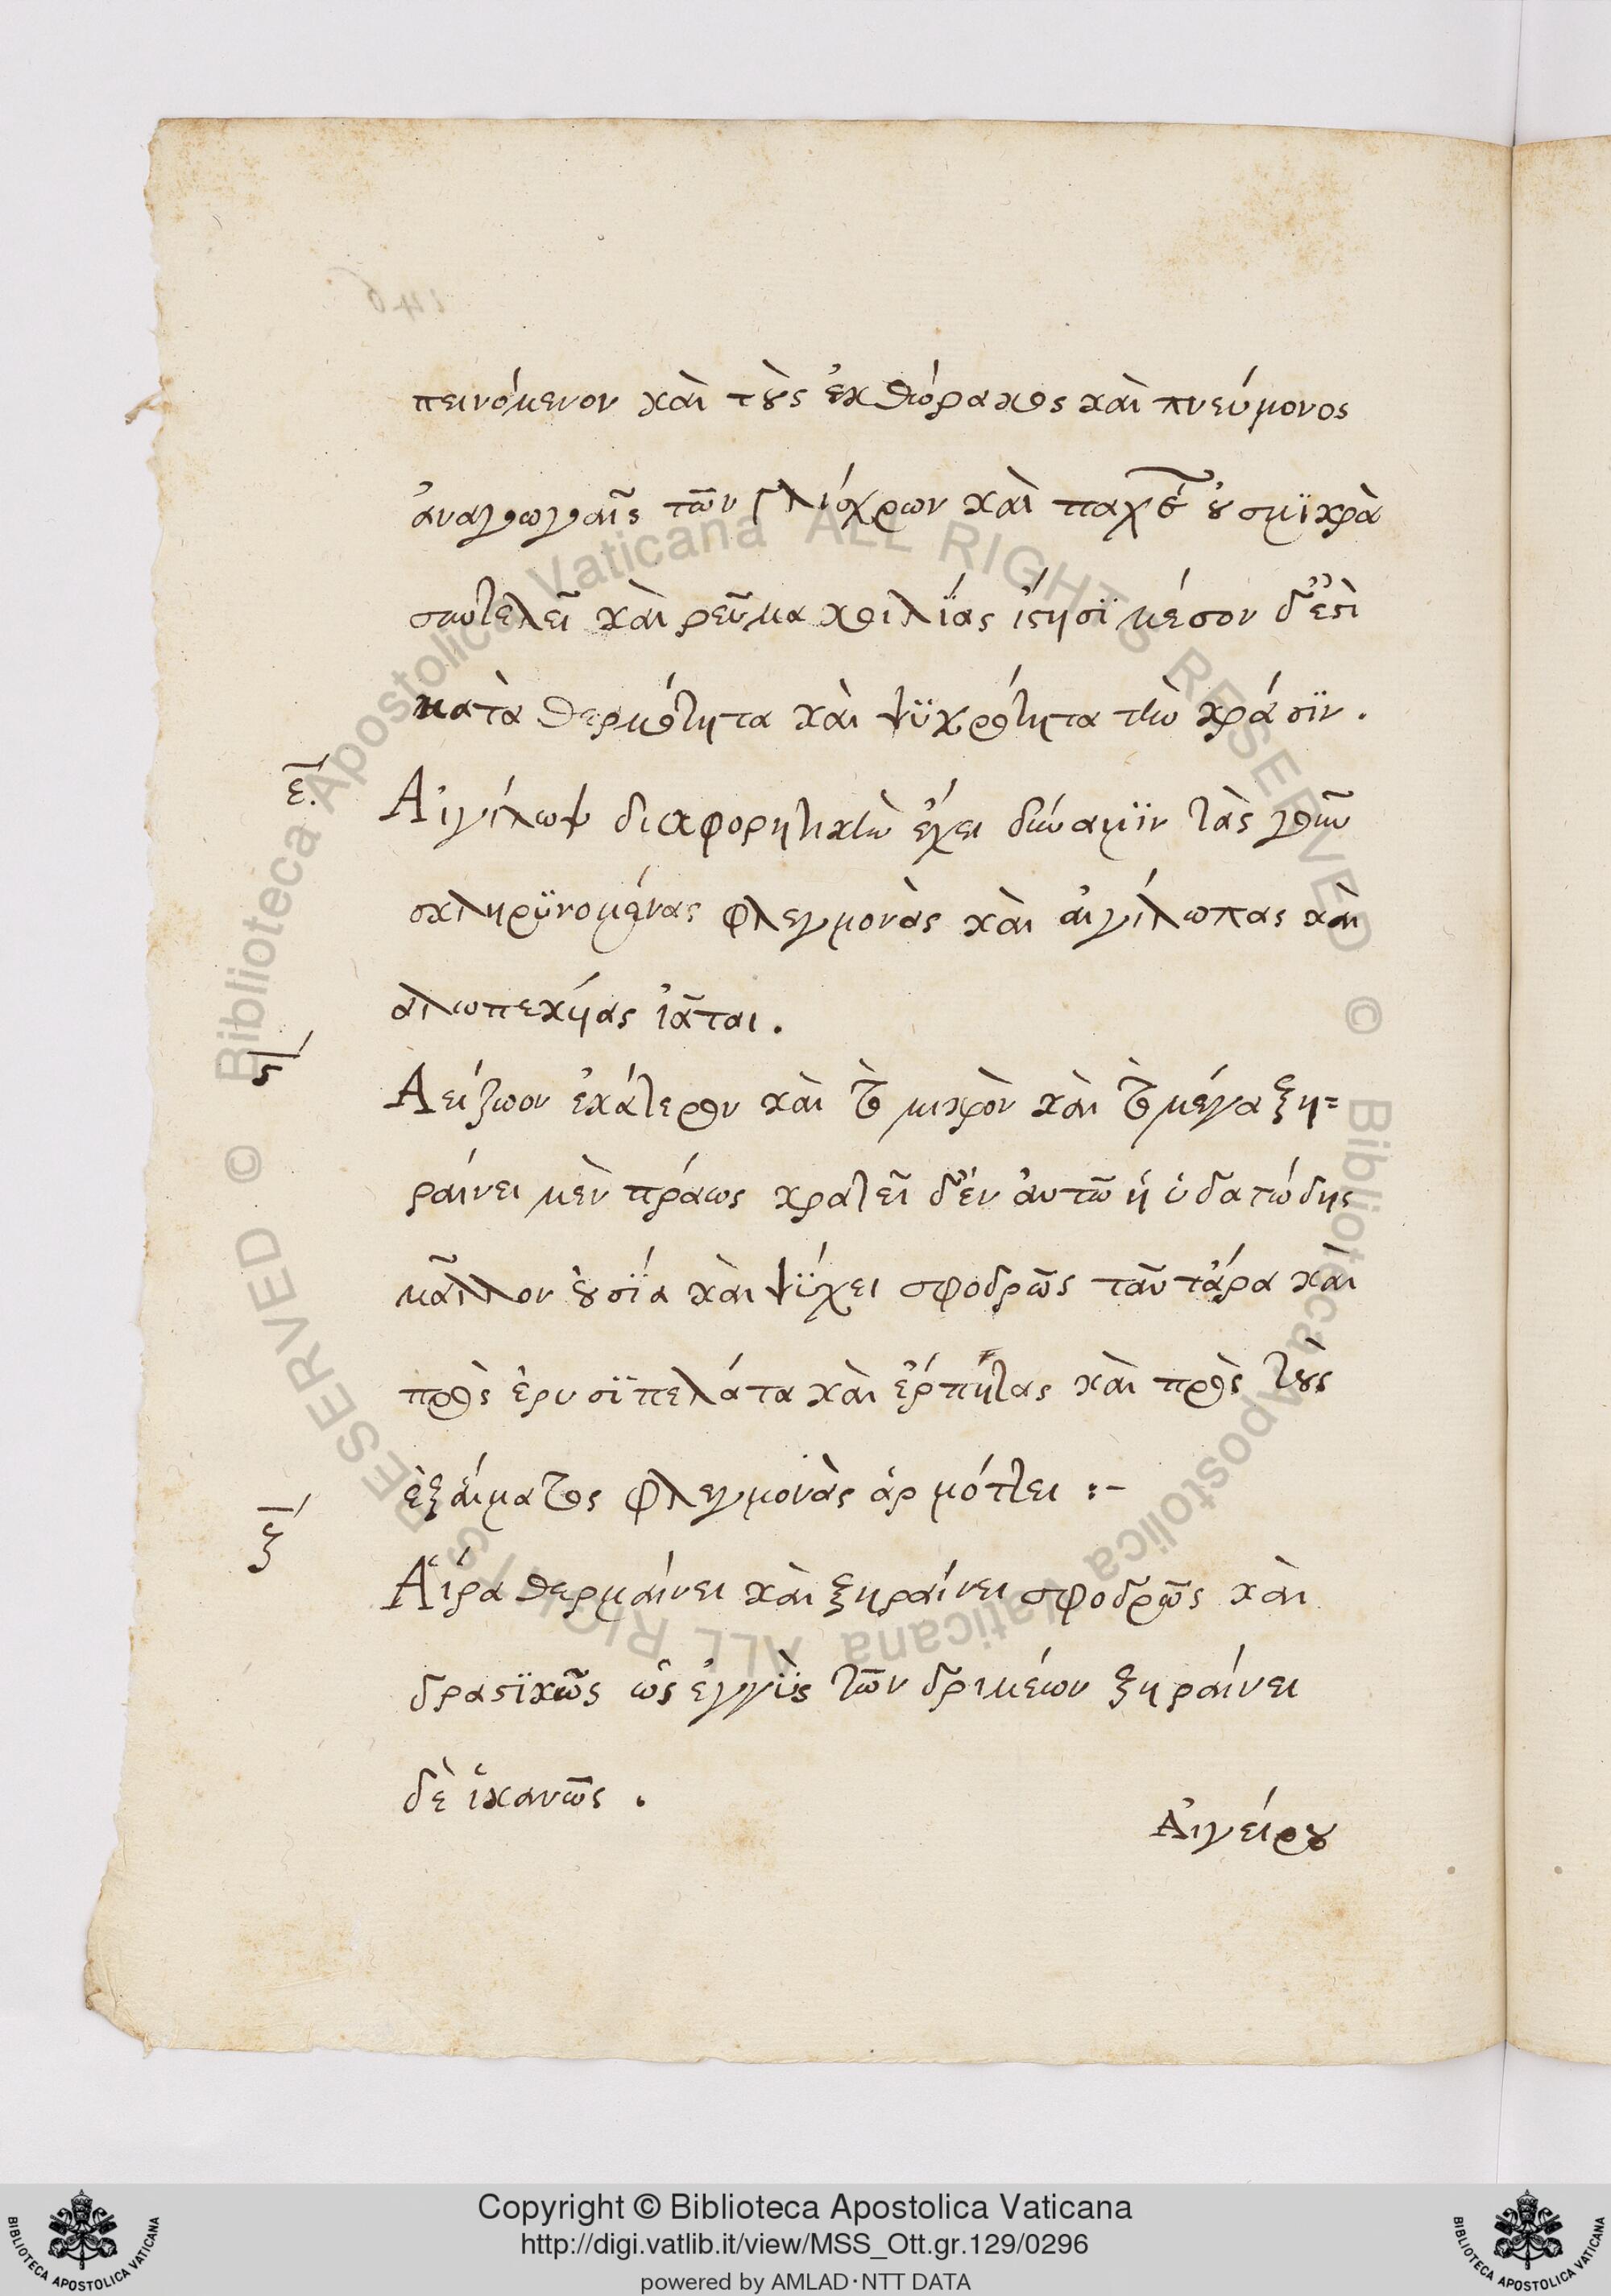 πεινόμενον καὶ τοὺς ἐκ θώρακος καὶ πνεύμονος
ἀναγωγαῖς τῶν γλίσχρων καὶ παχέ οὐ σμϊκρὰ
συντελεῖ καὶ ρεῦμα κοιλΐας ἵστησϊ μέσον δ' ἐστὶ
κατὰ θερμότητα καὶ ψϋχρότητα τὴν κράσϊν.
ε΄.
Αἰγίλωψ διαφορητικὴν ἔχει δύναμϊν τὰς γοῦν
σκληρϋνομένας φλεγμονὰς καὶ αἰγίλωπας καὶ
αλωπεκήας ἰᾶται.
ς΄
Αείζωον ἑκάτερον καὶ τὸ μικρὸν καὶ τὸ μέγα ξη=
ραίνει μὲν πράως κρατεῖ δ' ἐν ἀυτῶ ἡ ὑδατώδης
μᾶλλον οὐσΐα καὶ ψΰχει σφοδρῶς ταῦτ' ἄρα καὶ
πρὸς ἐρυσϊπελάτα καὶ ἕρπητας καὶ πρὸς τοὺς
ἐξ ἅιματος φλεγμονὰς ἁρμόττει :-
ζ΄
Αἶρα θερμαίνει καὶ ξηραίνει σφοδρῶς καὶ
δραστϊκῶς ὡς ἐγγὺς τῶν δριμέων ξηραίνει
δὲ ἱκανῶς.
Αἰγείρου
Copyright © Biblioteca Apostolica Vaticana
http://digi.vatlib.it/view/MSS_Ott.gr.129/0296
powered by AMLAD·NTT DATA
BIBLIOTECA APOSTOLICA VATICANA
BIBLIOTECA APOSTOLICA VATICANA
© Biblioteca Apostolica Vaticana ALL RIGHTS RESERVED © Biblioteca Apostolica Vaticana ALL RIGHTS RESERVED